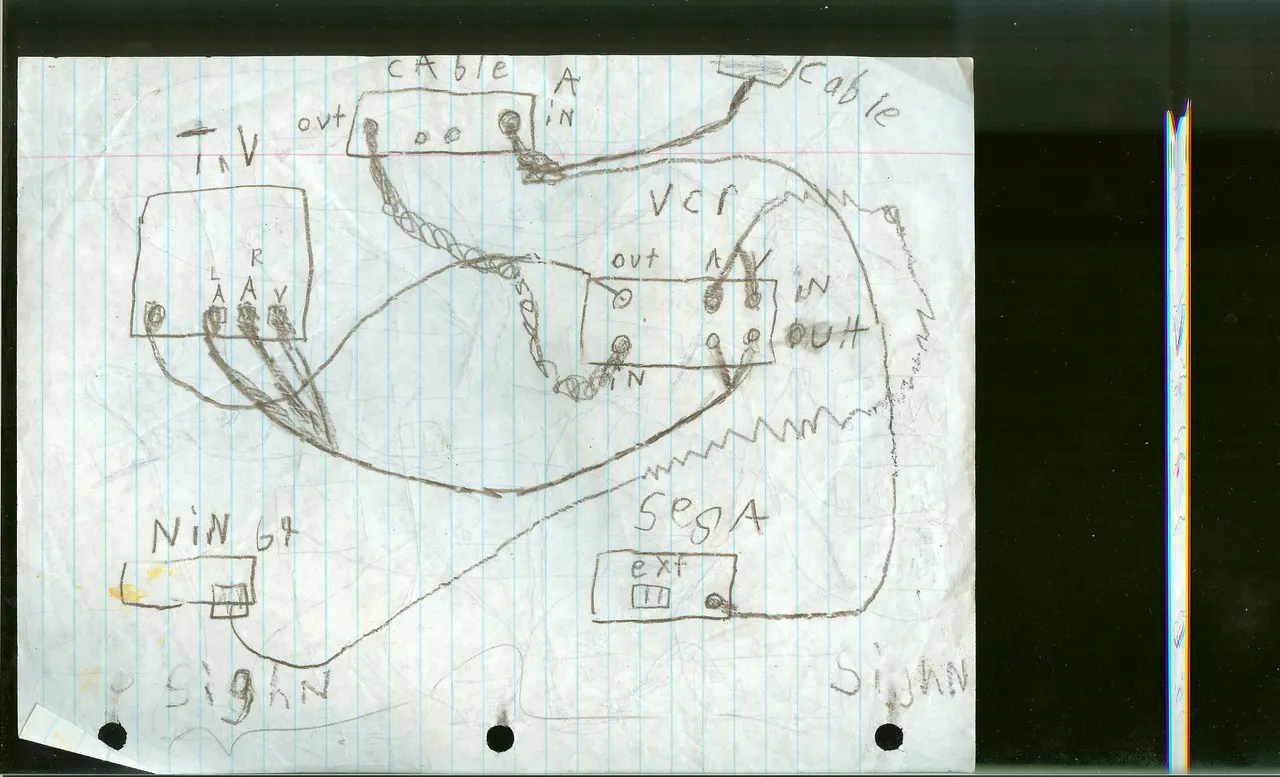 cAble A
cable
out iN
T,V
Vcr
out A V
iN
L R
A A V
OUt
iN
SegA
NiN 64
ext
sighN
SighN